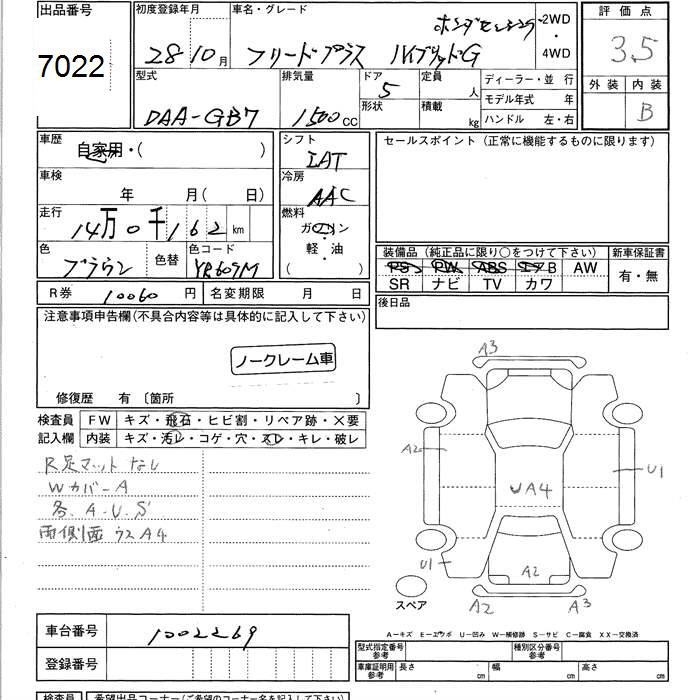 出品番号
7022
初度登録年月
28年10月
車名・グレード
ホンダセンシング
フリードプラス ハイブリッドG
2WD
・
4WD
評価点
3.5
外装 内装
B
型式
DAA-GB7
排気量
1500cc
ドア
5
形状
定員
人
積載
kg
ディーラー・並 行
モデル年式 年
ハンドル 左・右
車歴
自家用・( )
シフト
IAT
セールスポイント (正常に機能するものに限ります)
車検
年 月( 日)
冷房
AAC
走行
14万0千162km
燃料
ガソリン
・
軽・油
( )
色
ブラウン
色替
色コード
YR609M
装備品 (純正品に限り○をつけて下さい)
PS PW ABS エアB AW
SR ナビ TV カワ
新車保証書
有・無
R券 10060円
名変期限 月 日
後日品
注意事項申告欄(不具合内容等は具体的に記入して下さい)
ノークレーム車
修復歴 有 〔箇所 〕
検査員
記入欄
FW キズ・飛石・ヒビ割・リペア跡・×要
内装 キズ・汚レ・コゲ・穴・スレ・キレ・破レ
R足マットなし
Wカバ-A
各.A-U.S
両側面 ウスA4
A3
A2
U1
A4
U1
A2
A2
A3
スペア
A-キズ E-エクボ U-凹み W-補修跡 S-サビ C-腐食 XX-交換済
車台番号
1002269
登録番号
型式指定番号
参考
種別区分番号
参考
車庫証明用
参考
長さ cm
幅 cm
高さ cm
検査員
希望出品コーナー(ご希望のコーナー名を記入して下さい)